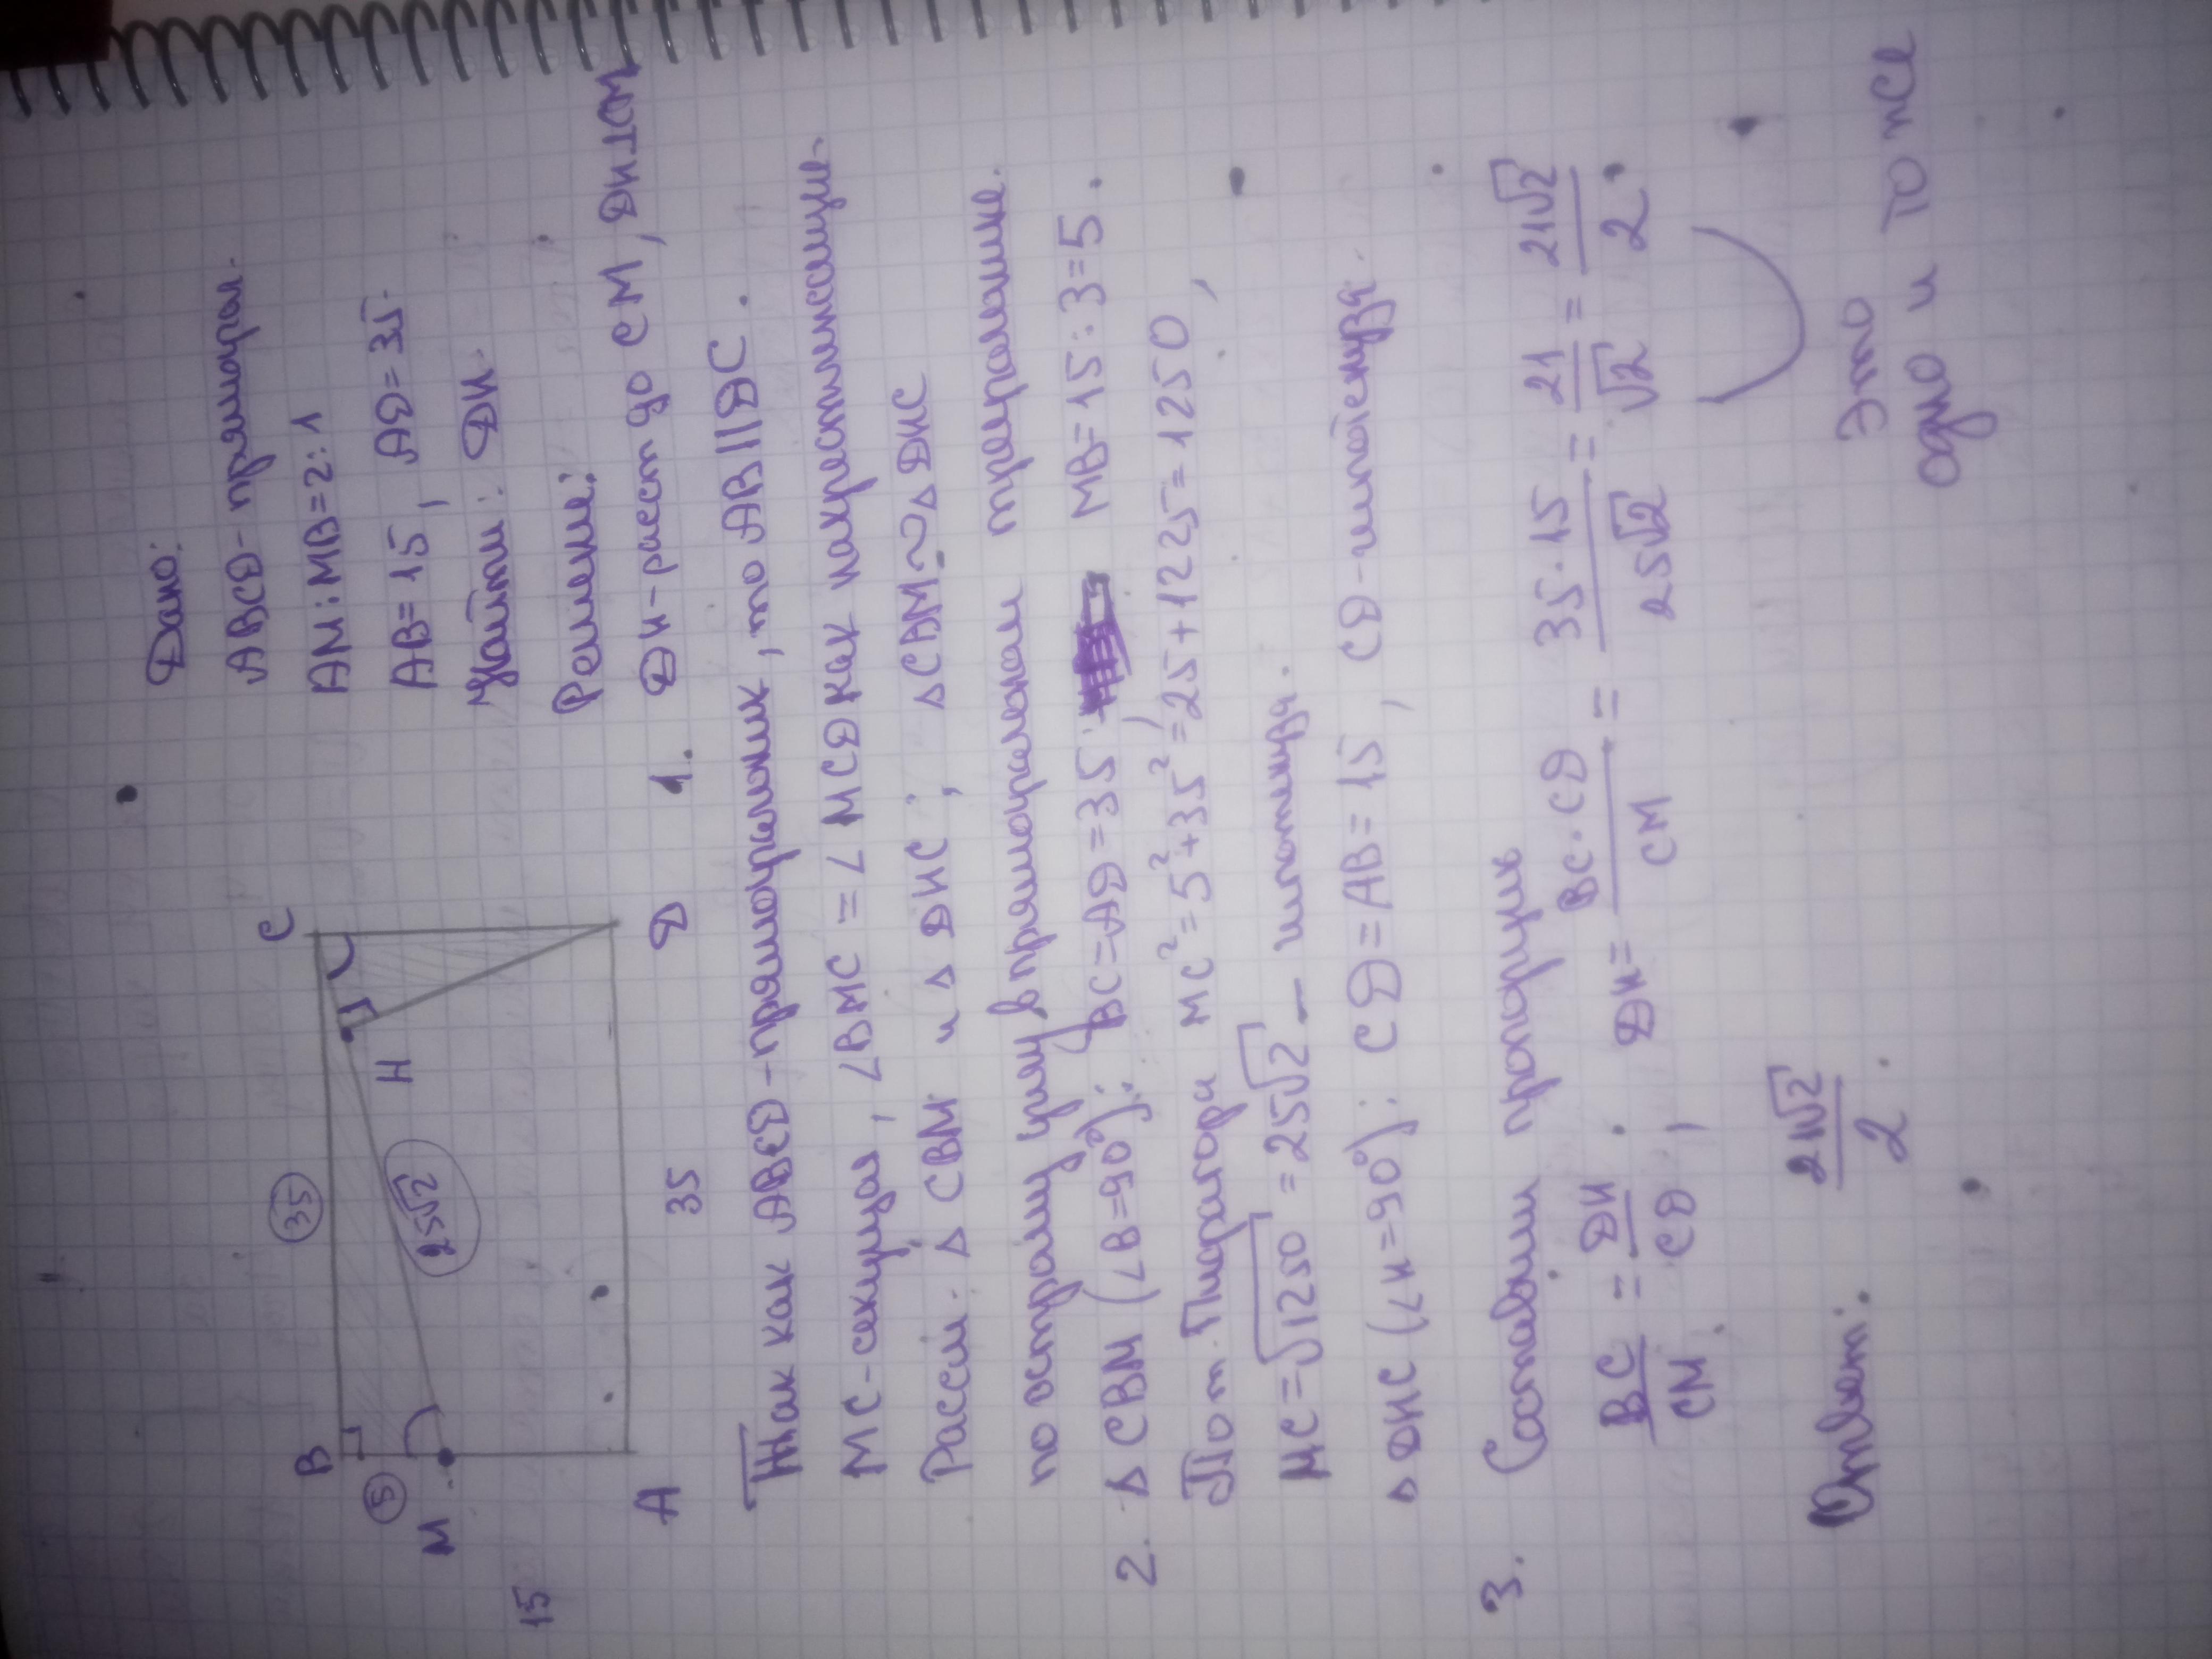 Дано:
ABCD - прямоугол.
AM:MB=2:1
AB=15, AD=35.
Найти: DH.
B
C
35
5
M
H
25√2
15
A
35
D
Решение:
1. DH - раст до CM, DH⊥CM
Так как ABCD - прямоугольник, то AB||DC.
MC - секущая, ∠BMC = ∠MCD как накрестлежащие.
Рассм. △CBM и △DHC; △CBM ~ △DHC
по острому углу в прямоугольном треугольнике.
2. △CBM (∠B=90°): BC=AD=35, MB=15:3=5.
По т. Пифагора MC²=5²+35²=25+1225=1250,
MC=√1250=25√2 - гипотенуза.
△DHC (∠H=90°): CD=AB=15, CD - гипотенуза.
3. Составим пропорцию
BC/CM = DH/CD, DH = BC·CD/CM = 35·15/25√2 = 21/√2 = 21√2/2.
Это
одно и то же
Ответ: 21√2/2.